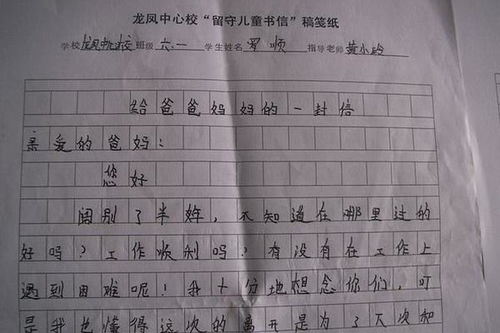 龙凤中心校“留守儿童书信”稿笺纸
学校龙凤中心校 班级六.一 学生姓名罗顺 指导老师黄小玲
给爸爸妈妈的一封信
亲爱的爸妈：
您好
阔别了半年，不知道在哪里过的
好吗？工作顺利吗？有没有在工作上
遇到困难呢！我十份地想念你们，可
是我也懂得这次的离开是为了下次和